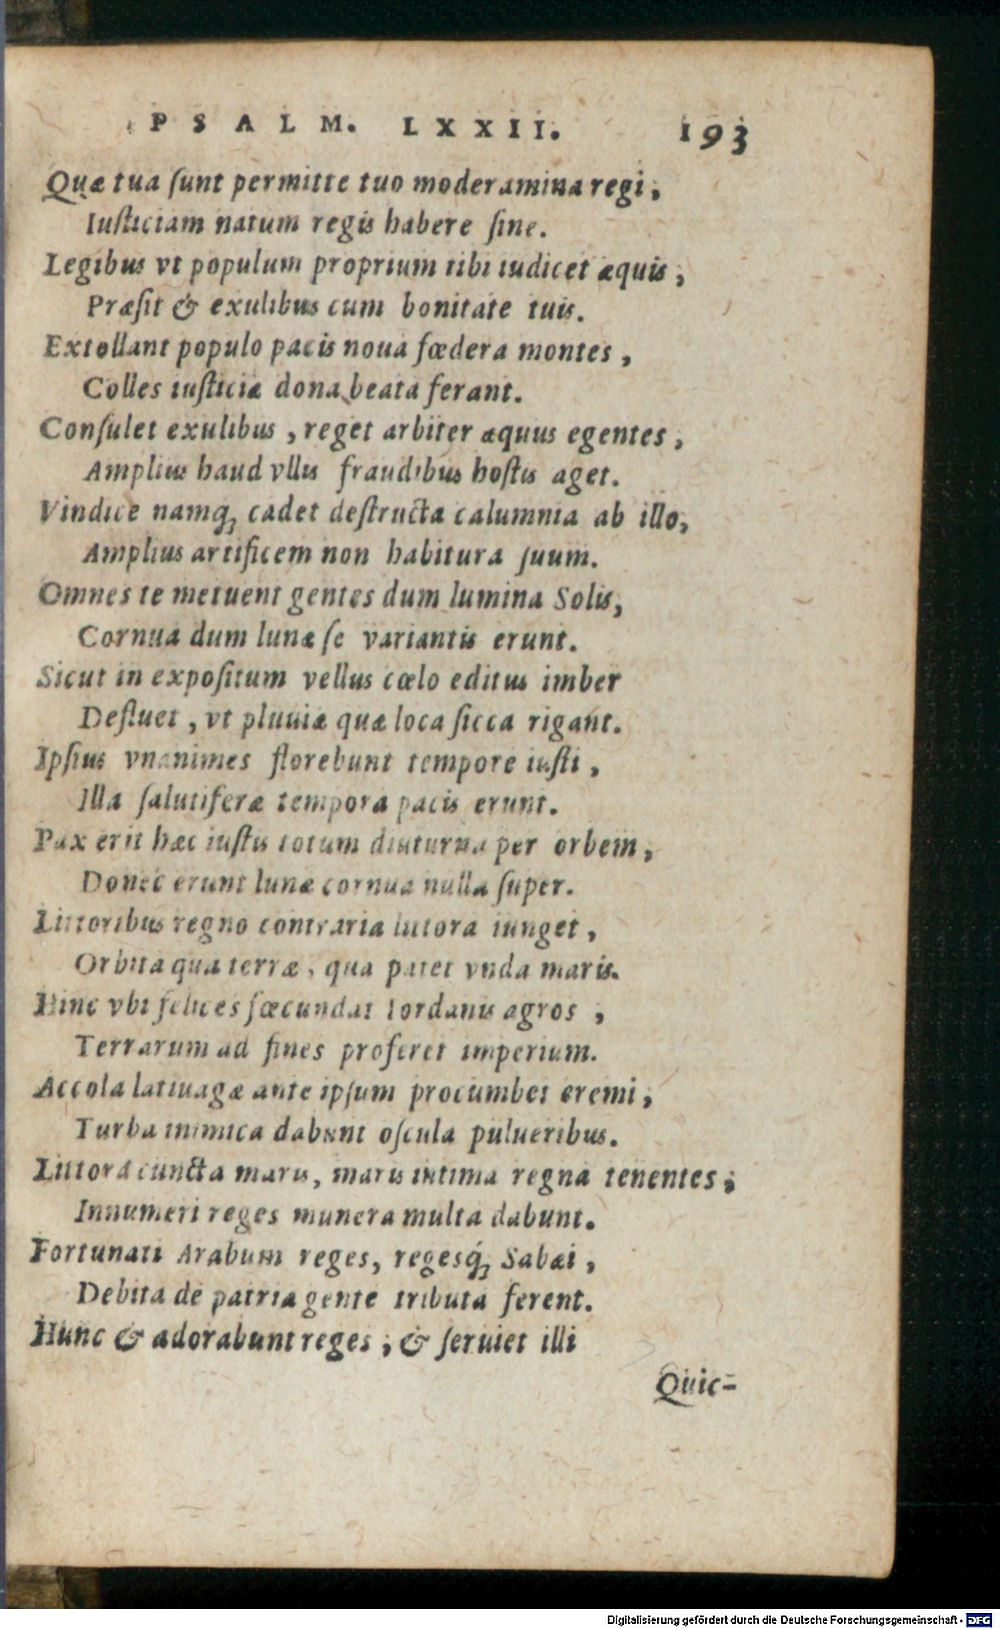 PSALM. LXXII. 193
Quæ tua ſunt permitte tuo moderamina regi,
Iuſticiam natum regis habere ſine.
Legibus vt populum proprium tibi iudicet æquis,
Præſit & exulibus cum bonitate tuis.
Extollant populo pacis noua fœdera montes,
Colles iuſticiæ dona beata ferant.
Conſulet exulibus, reget arbiter æquus egentes,
Amplius haud vllis fraudibus hoſtis aget.
Vindice namq́ꝫ cadet deſtructa calumnia ab illo,
Amplius artificem non habitura ſuum.
Omnes te metuent gentes dum lumina Solis,
Cornua dum lunæ ſe variantis erunt.
Sicut in expoſitum vellus cœlo editus imber
Defluet, vt pluuiæ quæ loca ſicca rigant.
Ipſius vnanimes florebunt tempore iuſti,
Illa ſalutiferæ tempora pacis erunt.
Pax erit hæc iuſtis totum diuturna per orbem,
Donec erunt lunæ cornua nulla ſuper.
Littoribus regno contraria littora iunget,
Orbita qua terræ, qua patet vnda maris.
Hinc vbi felices fœcundat Iordanis agros,
Terrarum ad fines proferet imperium.
Accola latiuagæ ante ipſum procumbet eremi,
Turba inimica dabunt oſcula pulueribus.
Littora cuncta maris, maris intima regna tenentes,
Innumeri reges munera multa dabunt.
Fortunati Arabum reges, regesq́ꝫ Sabæi,
Debita de patria gente tributa ferent.
Hunc & adorabunt reges, & ſeruiet illi
Quic-
Digitalisierung gefördert durch die Deutsche Forschungsgemeinschaft - DFG